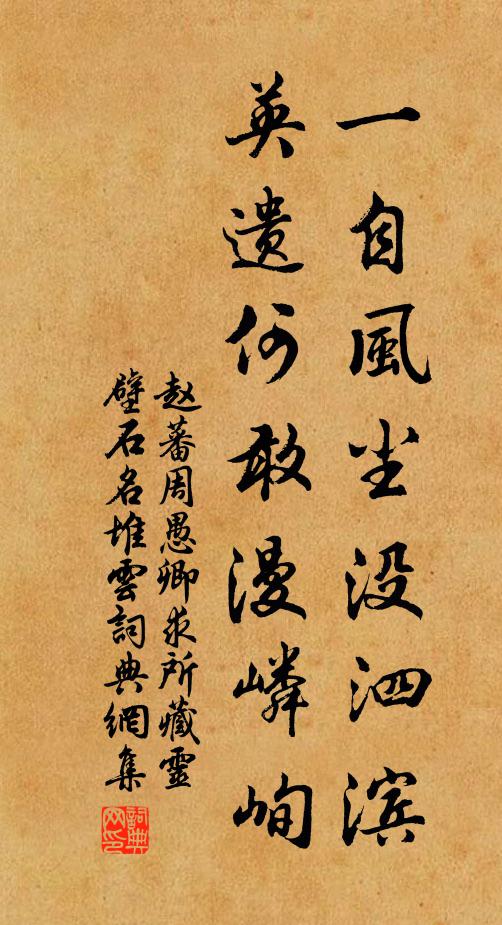 一自風尘没泗滨
英遗何敢漫嶙峋
赵蕃周愚卿求所藏靈
壁石名堆雲詞典網集
詞典网印